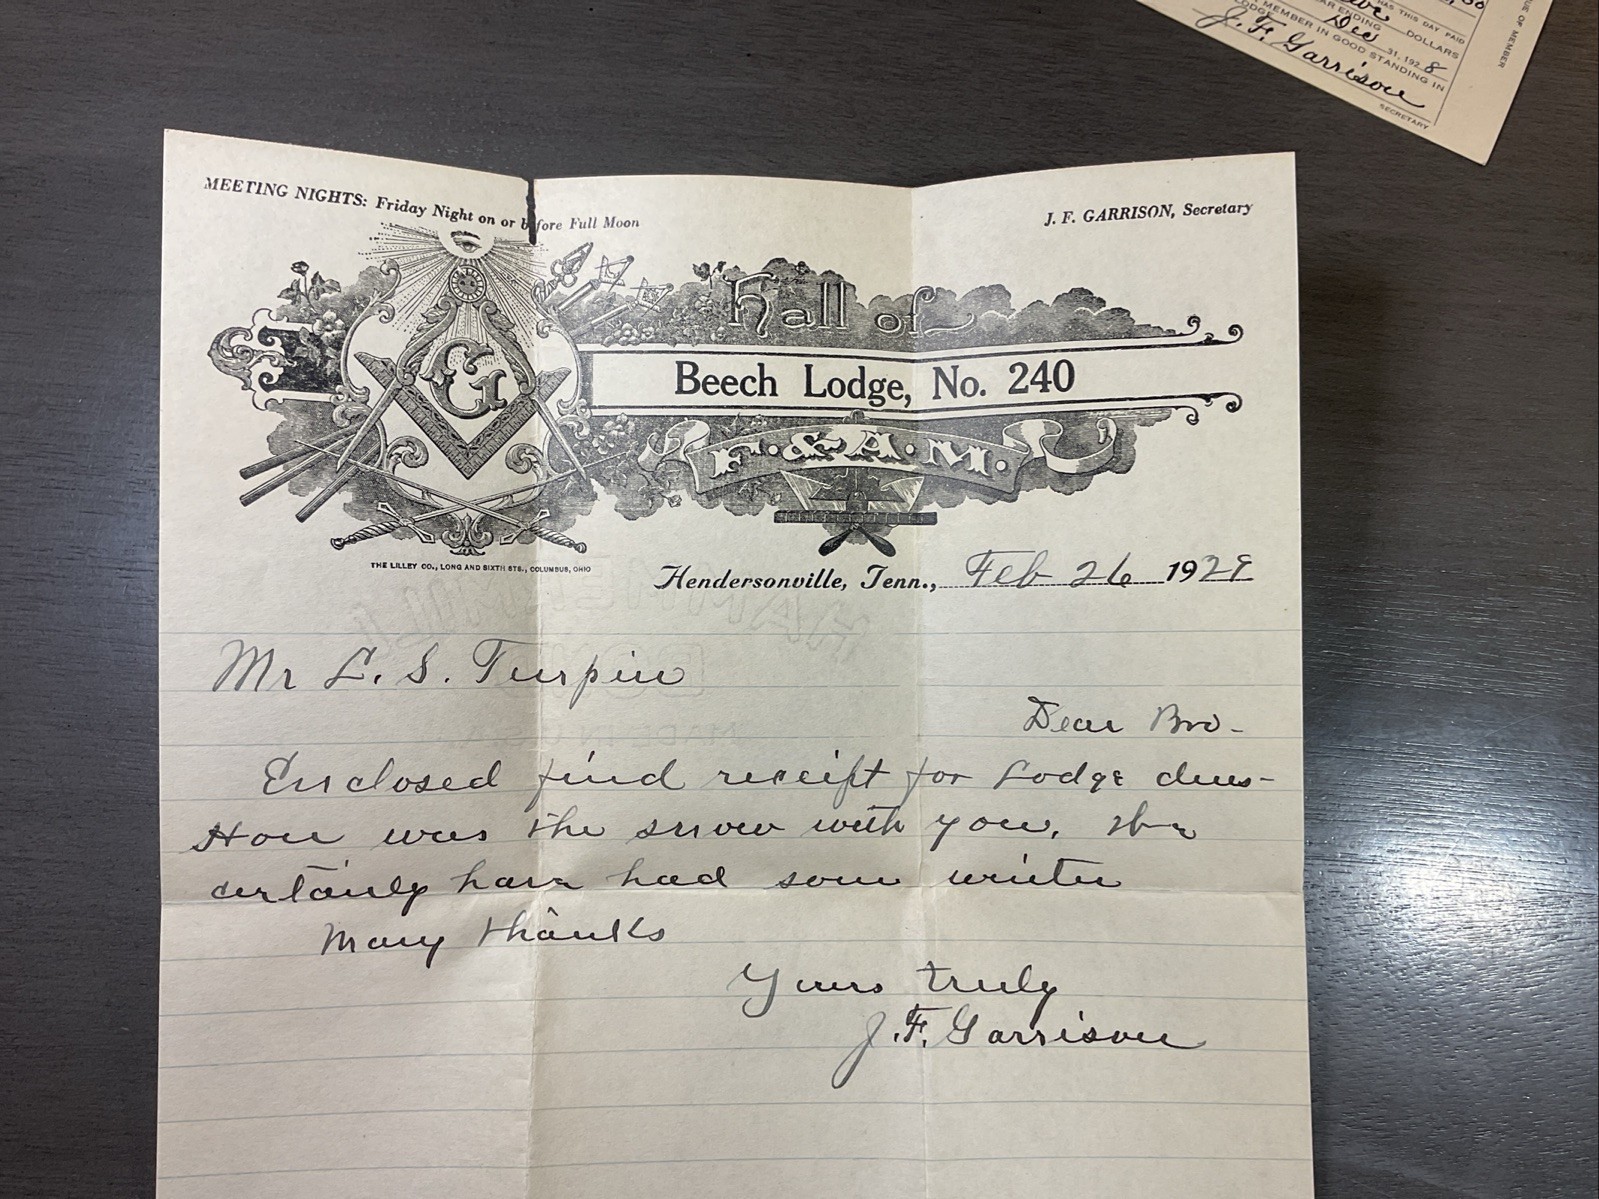 HAS THIS DAY PAID
DOLLARS
Dec 31, 1928
MEMBER IN GOOD STANDING IN
LODGE
J. F. Garrison
SECRETARY
OF MEMBER
MEETING NIGHTS: Friday Night on or before Full Moon
J. F. GARRISON, Secretary
G
Hall of
Beech Lodge, No. 240
F. & A. M.
THE LILLEY CO., LONG AND SIXTH STS., COLUMBUS, OHIO
Hendersonville, Tenn., Feb 26 1929
HAMMERMILL
BOND
MADE IN U.S.A.
Mr L. S. Turpin
Dear Bro-
Enclosed find receipt for Lodge dues-
How was the snow with you. We
certainly have had some winter
Many thanks
Yours truly
J. F. Garrison